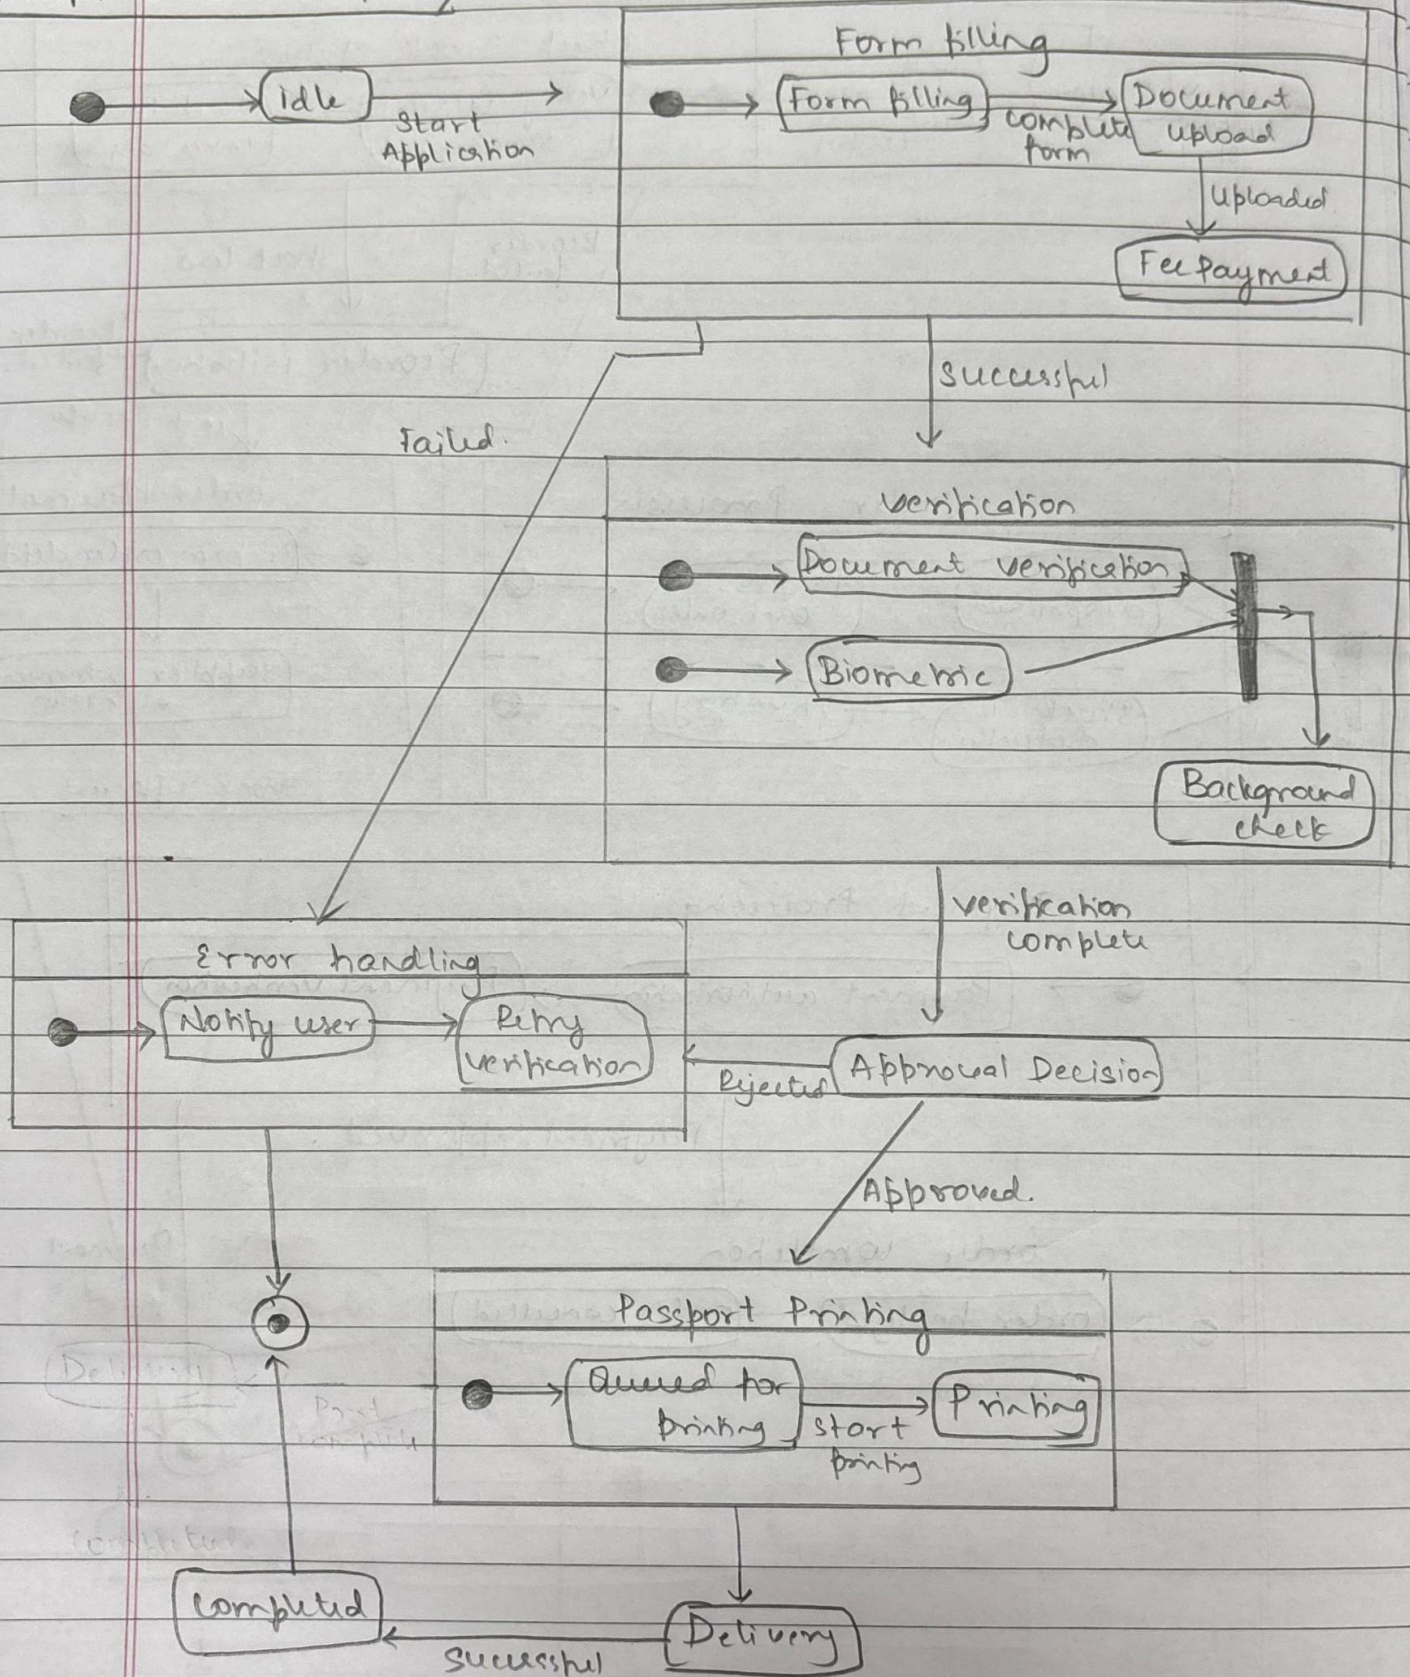 Form filling
idle
Start
Application
Form filling
complete
form
Document
upload
Uploaded
Fee Payment
Successful
Failed.
verification
Document verification
Biometric
Background
check
verification
complete
Error handling
Notify user
Retry
verification
Rejected
Approval Decision
Approved.
Passport Printing
Queued for
printing
Start
printing
Printing
Completed
Successful
Delivery